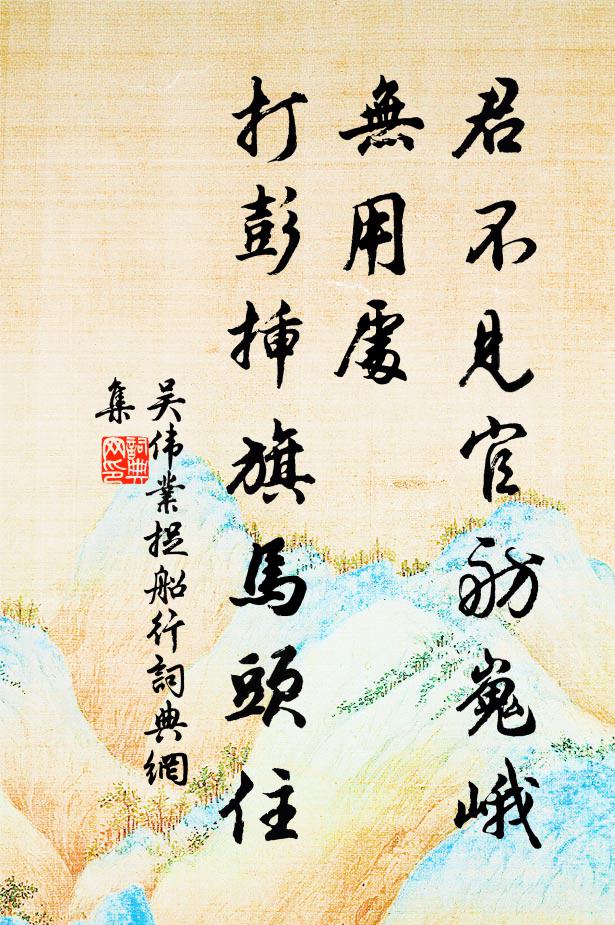 君不見官舫嵬峨
無用處
打彭揷旗馬頭住
吴伟業捉船行詞典網
集
詞典
网印